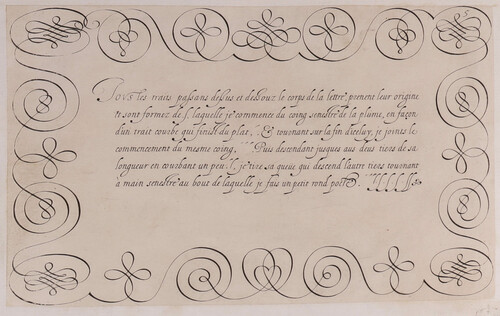 Tous les traits passans dessus et dessouz le corps de la lettre, prenent leur origine
& sont formez de ſ, laquelle je commence du coing senestre de la plume, en façon
d'un trait courbe qui finist du plat, & tournant sur la fin d'iceluy, je joints le
commencement du mesme coing, Puis descendant jusques aux deux tiers de sa
longueur en courbant un peu, je tire sa queue qui descend l'autre tiers tournant
a main senestre au bout de laquelle je fais un petit rond